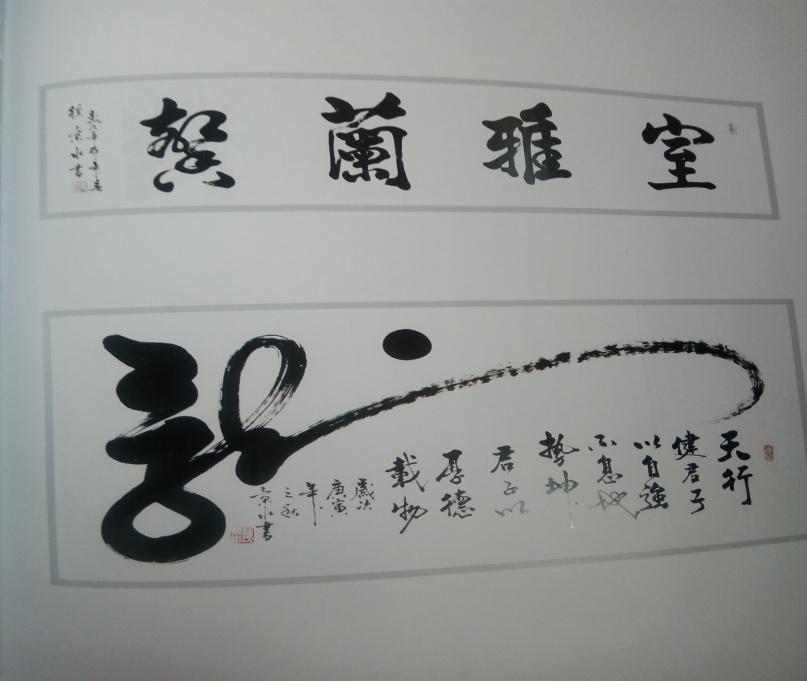 室雅蘭馨
歲次辛卯年春
京水書
龍
天行
健君子
以自強
不息地
勢坤
君子以
厚德
載物
歲次
庚寅
年
之秋
京水書